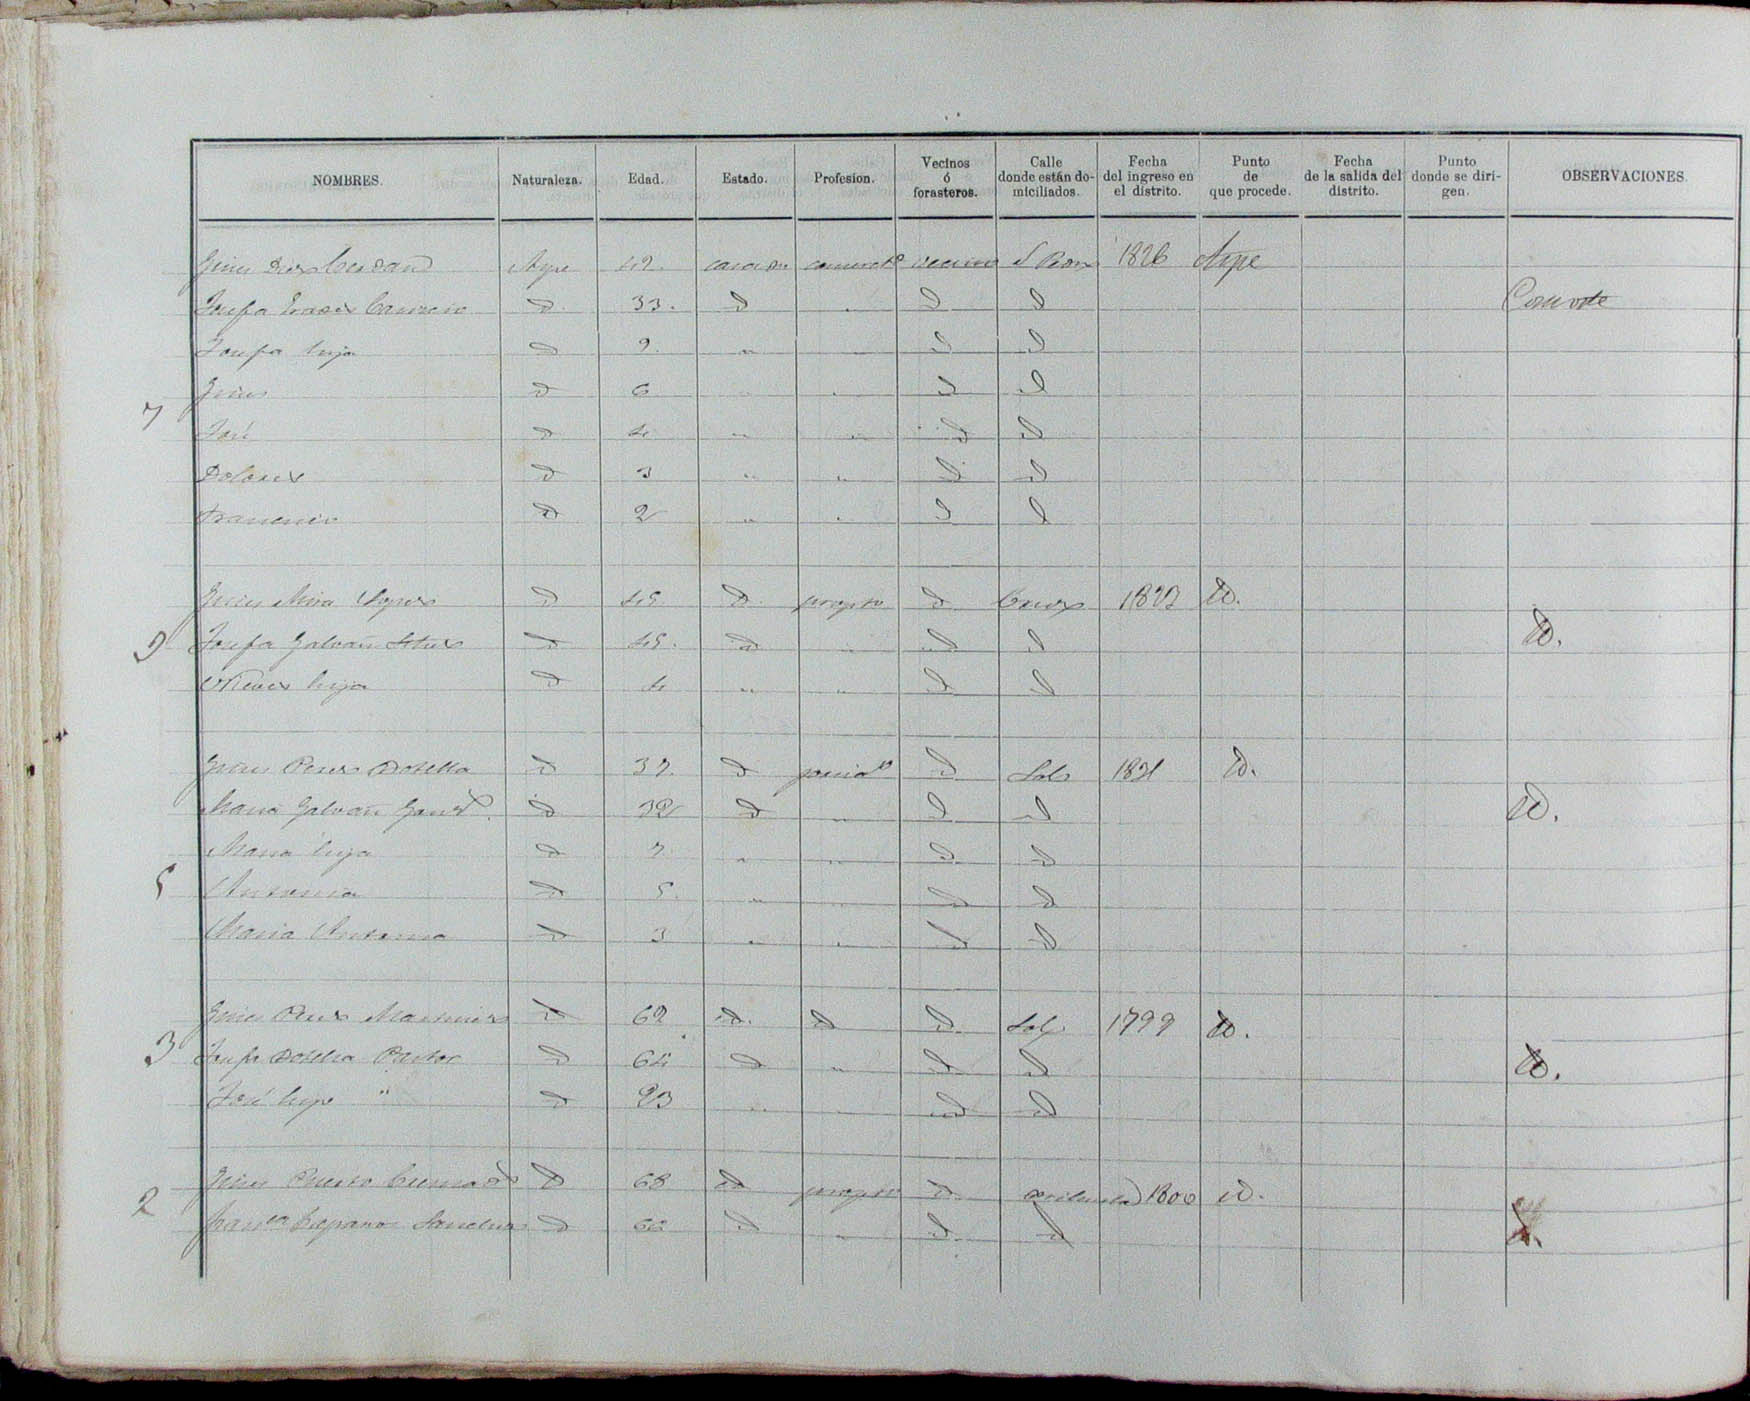 NOMBRES. Naturaleza. Edad. Estado. Profesion. Vecinos ó forasteros. Calle donde están domiciliados. Fecha del ingreso en el distrito. Punto de que procede. Fecha de la salida del distrito. Punto donde se dirigen. OBSERVACIONES.
Gines Aspe 42. casado vecino S Roq 1826 Aspe
Josefa d 33. d " d d Consorte
Josefa hija d 9. " " d d
Gines d 6 " " d d
7
José d 4 " " d d
Dolores d 3 " " d d
Francisco d 2 " " d d
Gines Mira d 45 d d Cruz 1823 id.
3 Josefa Galvañ d 45. d " d d id.
hija d 4 " " d d
Gines Perez Botella d 37. d d Sol 1831 id.
Maria Galvañ d 32 d " d d id.
Maria hija d 7 " " d d
5 Antonia d 5. " " d d
Maria Antonia d 3 " " d d
Gines Perez Martinez d 62 d. d d Sol 1799 id.
3 Josefa Botella Pastor d 64 d " d d id.
José hijo " d 23 " " d d
Gines Puerto d 68 d d 1800 id.
2 Franca Sanchez d 66 d " d d id.